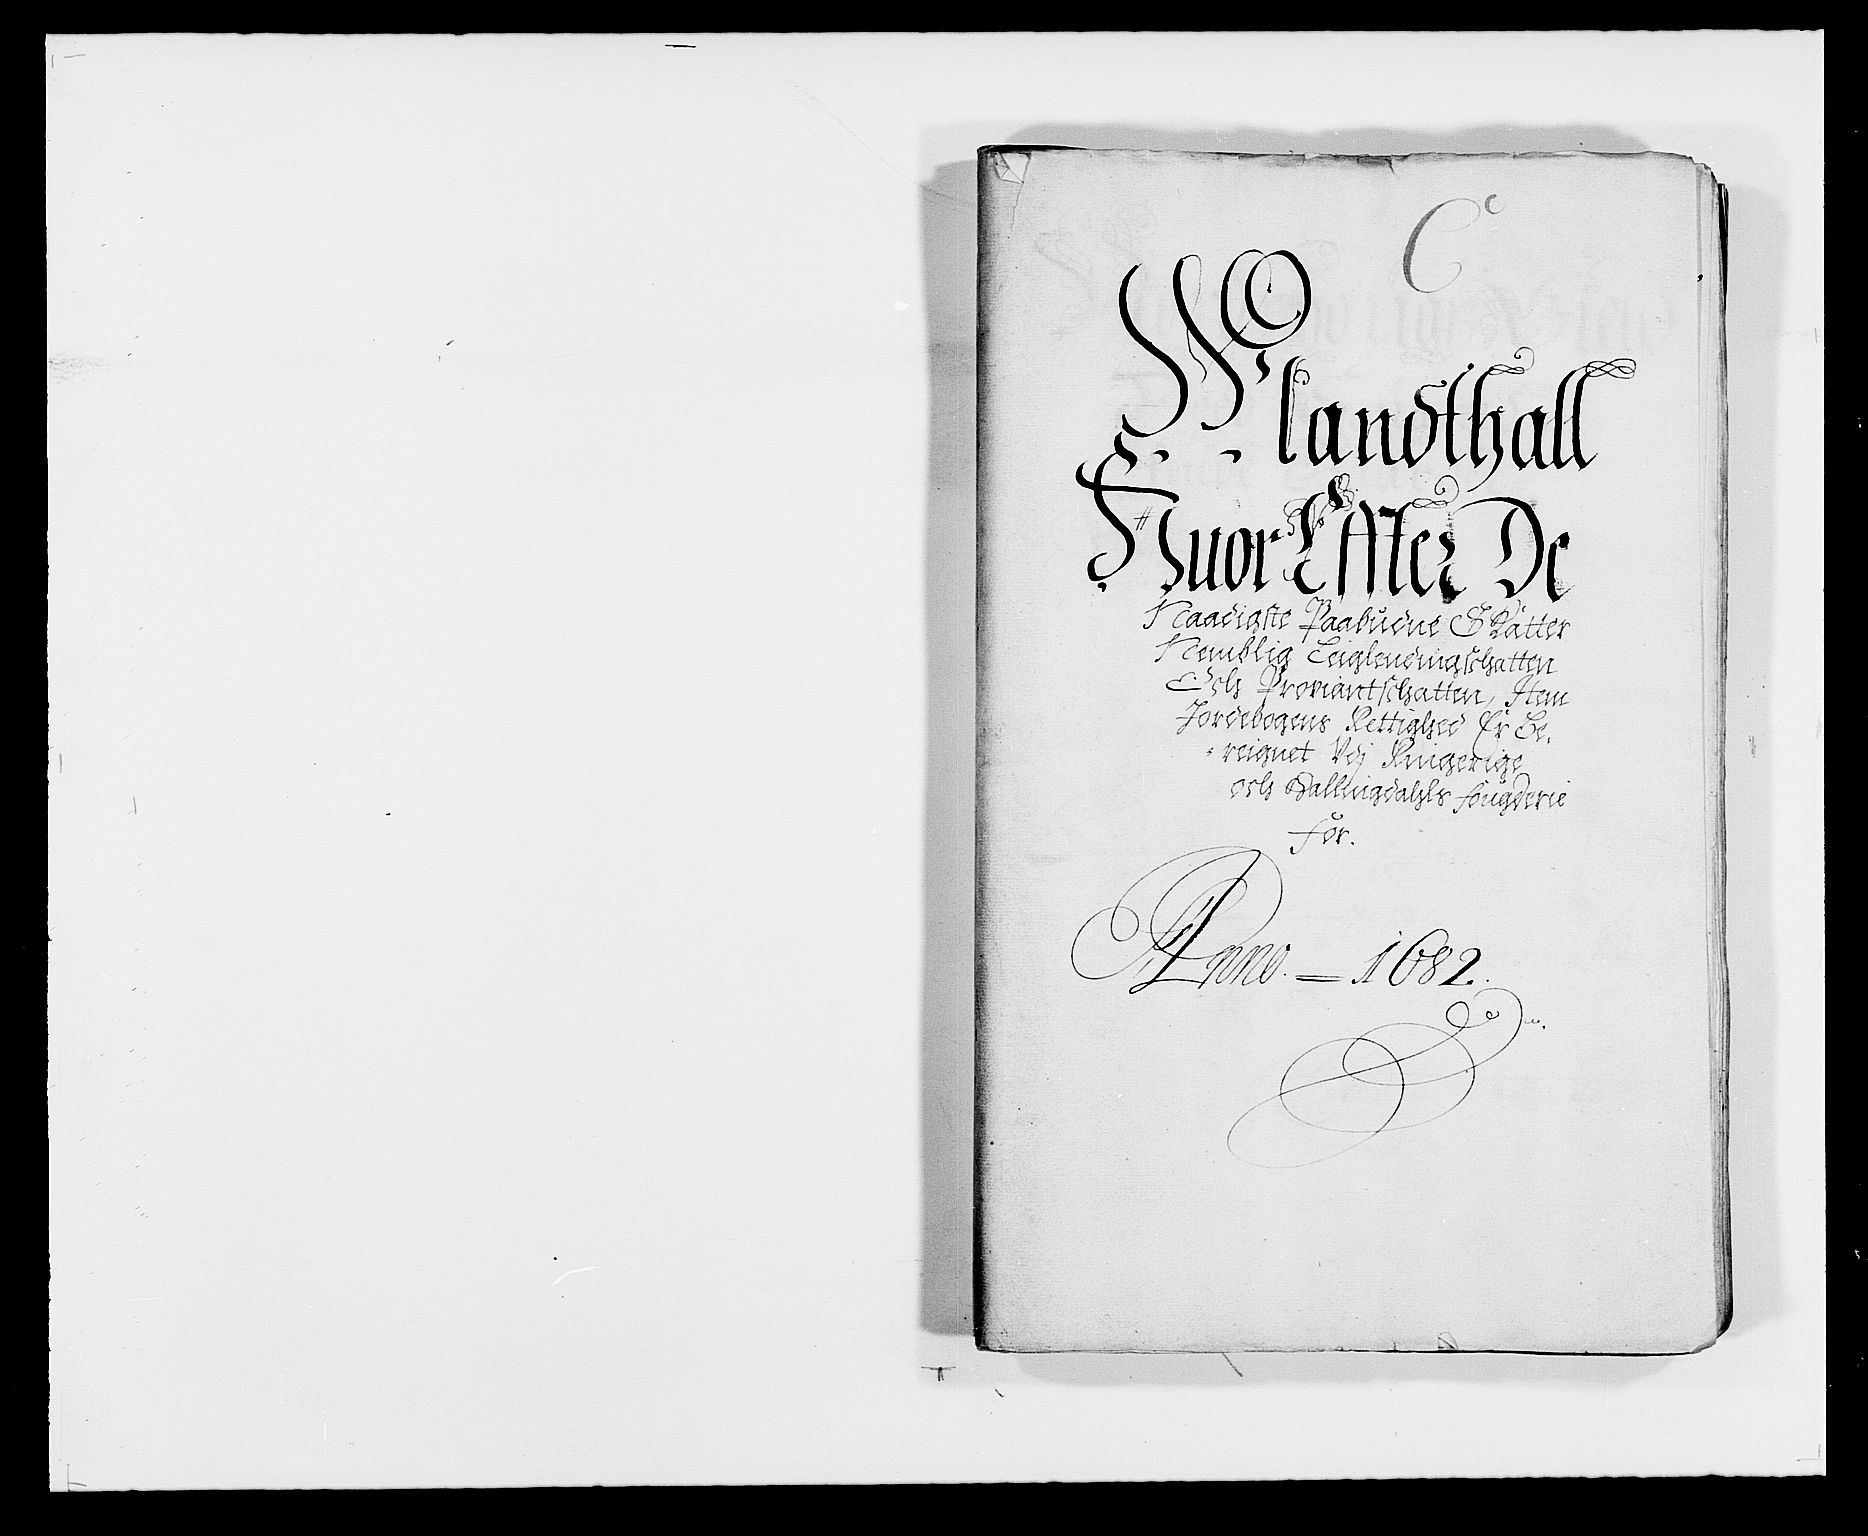 C
Mandthall
Huor Effter De
Naadigste Paabudne Skatter
Nemblig Leiglendingschatten
Och Proviantschatten, Item
Jordebogens Rettighed Er Be,
reignet Vdj Ringerige
och Hallingdahls fougderie
for.
Anno. 1682.